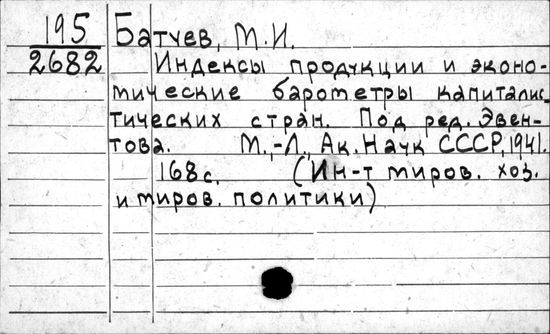 195 Батуев, М.И.
2682 Индексы продукции и эконо-
мические барометры капиталис_
тических стран. Под ред. Эвен-
това. М.,-Л., Ак. Наук СССР, 1941.
168 с. (Ин-т миров. хоз.
и миров. политики)